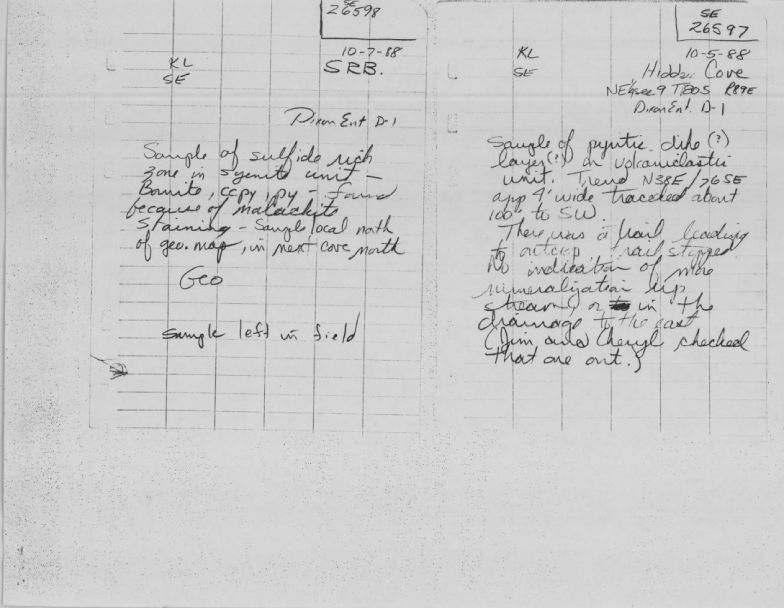 SE
26598
10-7-88
KL
SRB.
SE
Dixon Ent D-1
Sample of sulfide rich
zone in syenite unit -
Bornite, ccpy, py - found
because of malachite
staining - Sample local north
of geo. map, in next cove north
Geo
Sample left in field
SE
26597
10-5-88
KL
SE
Hidden Cove
NE¼ sec 9 T80S R89E
Dixon Ent. D-1
Sample of pyritic dike (?)
layer (?) in volcaniclastic
unit. Trend N38E/76SE
app 4' wide traceded about
100' to SW.
There was a trail leading
to outcrop trail stopped.
No indication of more
mineralization up
stream, or in the
drainage to the east
(Jim and Cheryl checked
that one out.)